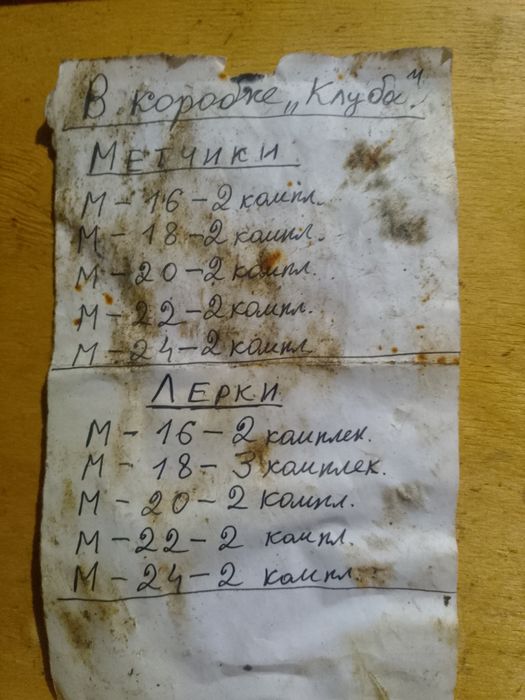 В коробке „Клуба"
МЕТЧИКИ
М – 16 – 2 компл.
М – 18 – 2 компл.
М – 20 – 2 компл.
М – 22 – 2 компл.
М – 24 – 2 компл
ЛЕРКИ
М – 16 – 2 комплек.
М – 18 – 3 комплек.
М – 20 – 2 компл.
М – 22 – 2 компл.
М – 24 – 2 компл.